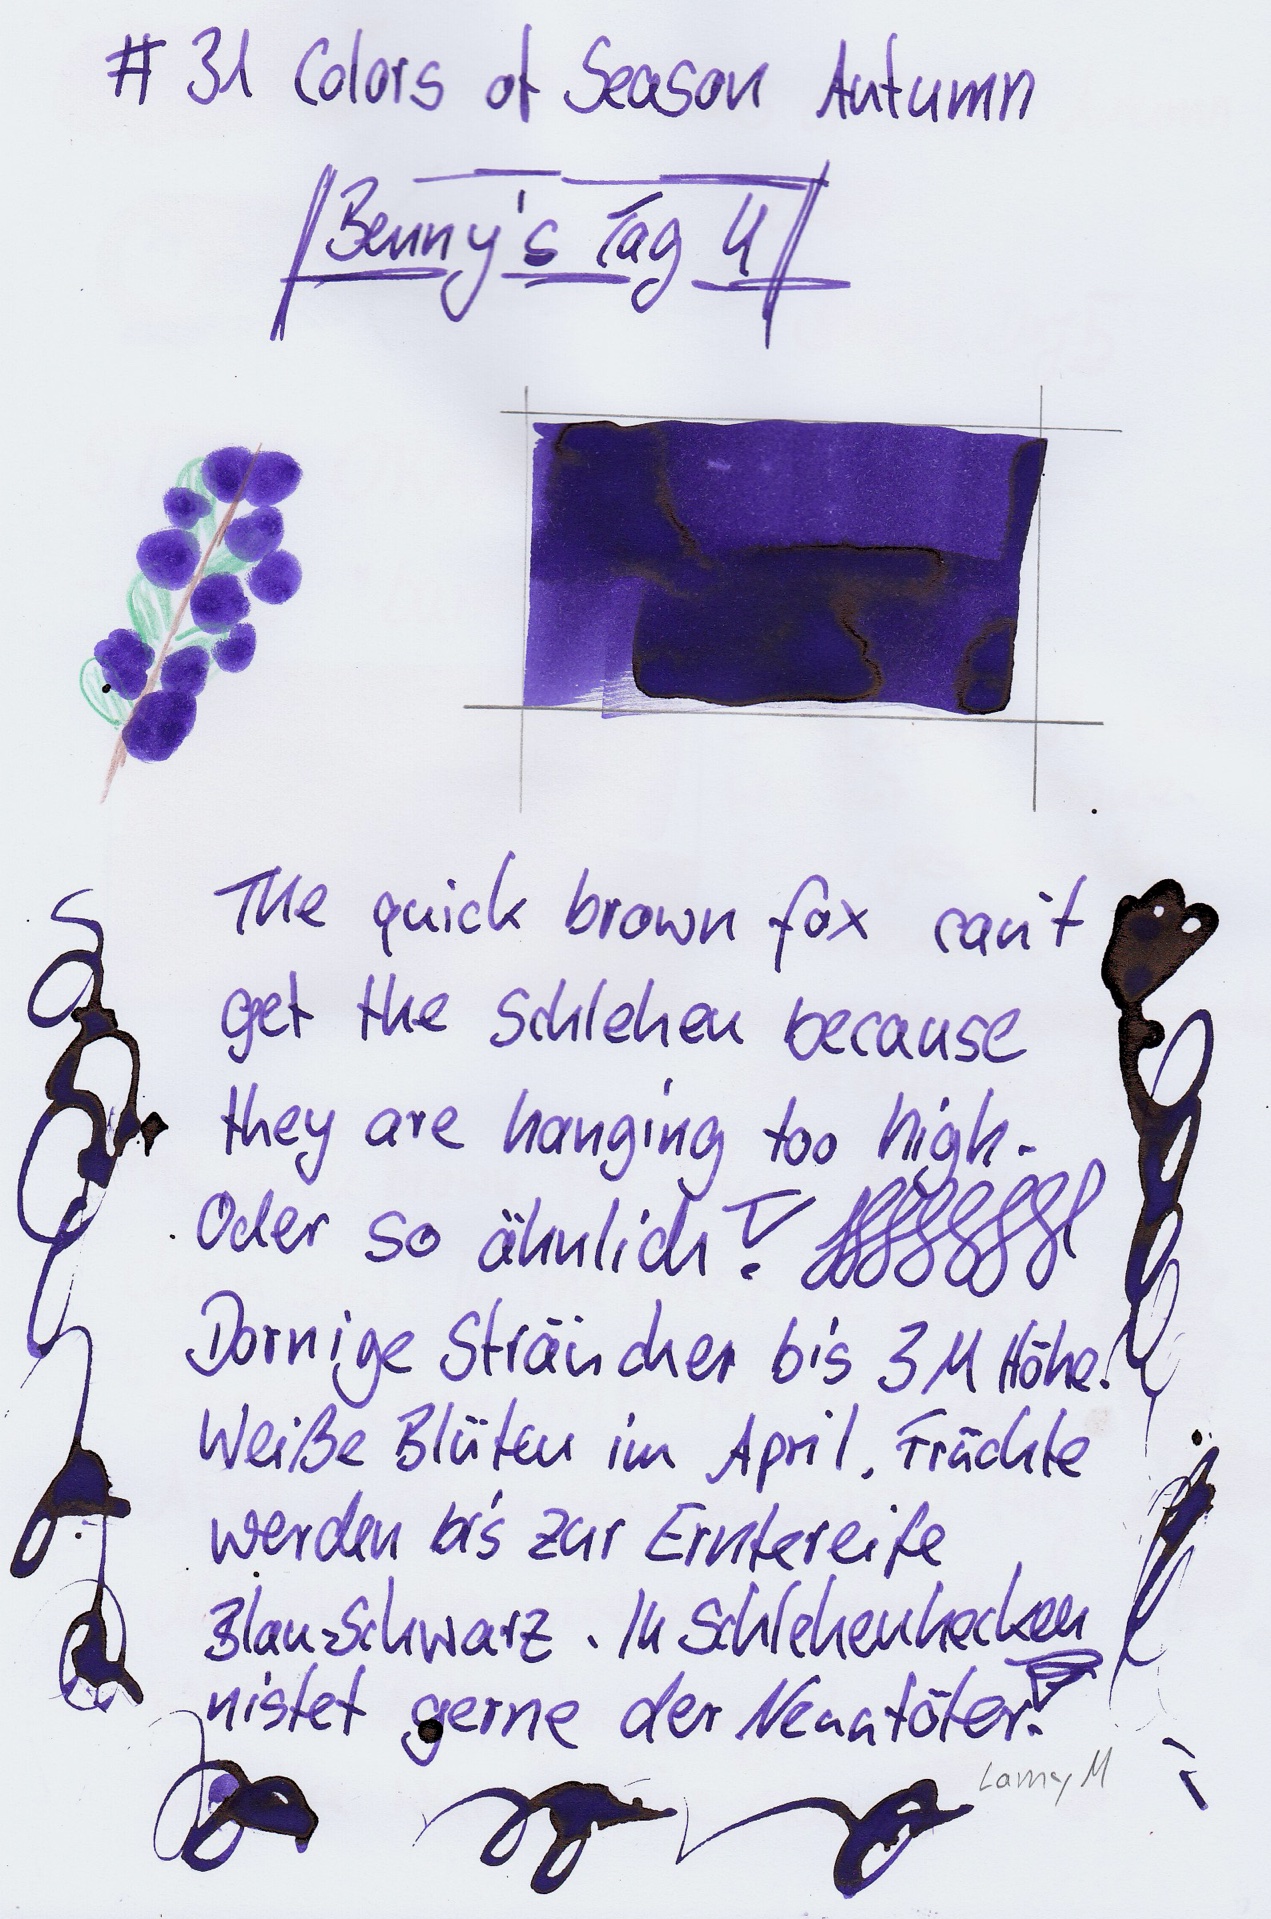 # 31 Colors of Season Autumn
Benny's Tag 4
The quick brown fox can't
get the Schlehen because
they are hanging too high.
Oder so ähnlich!
Dornige Sträucher bis 3 M Höhe!
Weiße Blüten im April. Früchte
werden bis zur Erntereife
Blau-Schwarz. In Schlehenhecken
nistet gerne der Neuntöter!
Lamy M